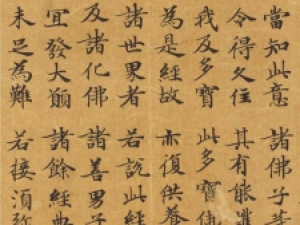 當知此意 諸佛子等
令得久住 其有能護
我及多寶 此多寶佛
為是經故 亦復供養
諸世界者 若說此經
及諸化佛 諸善男子
宜發大願 諸餘經典
未足為難 若接須弥